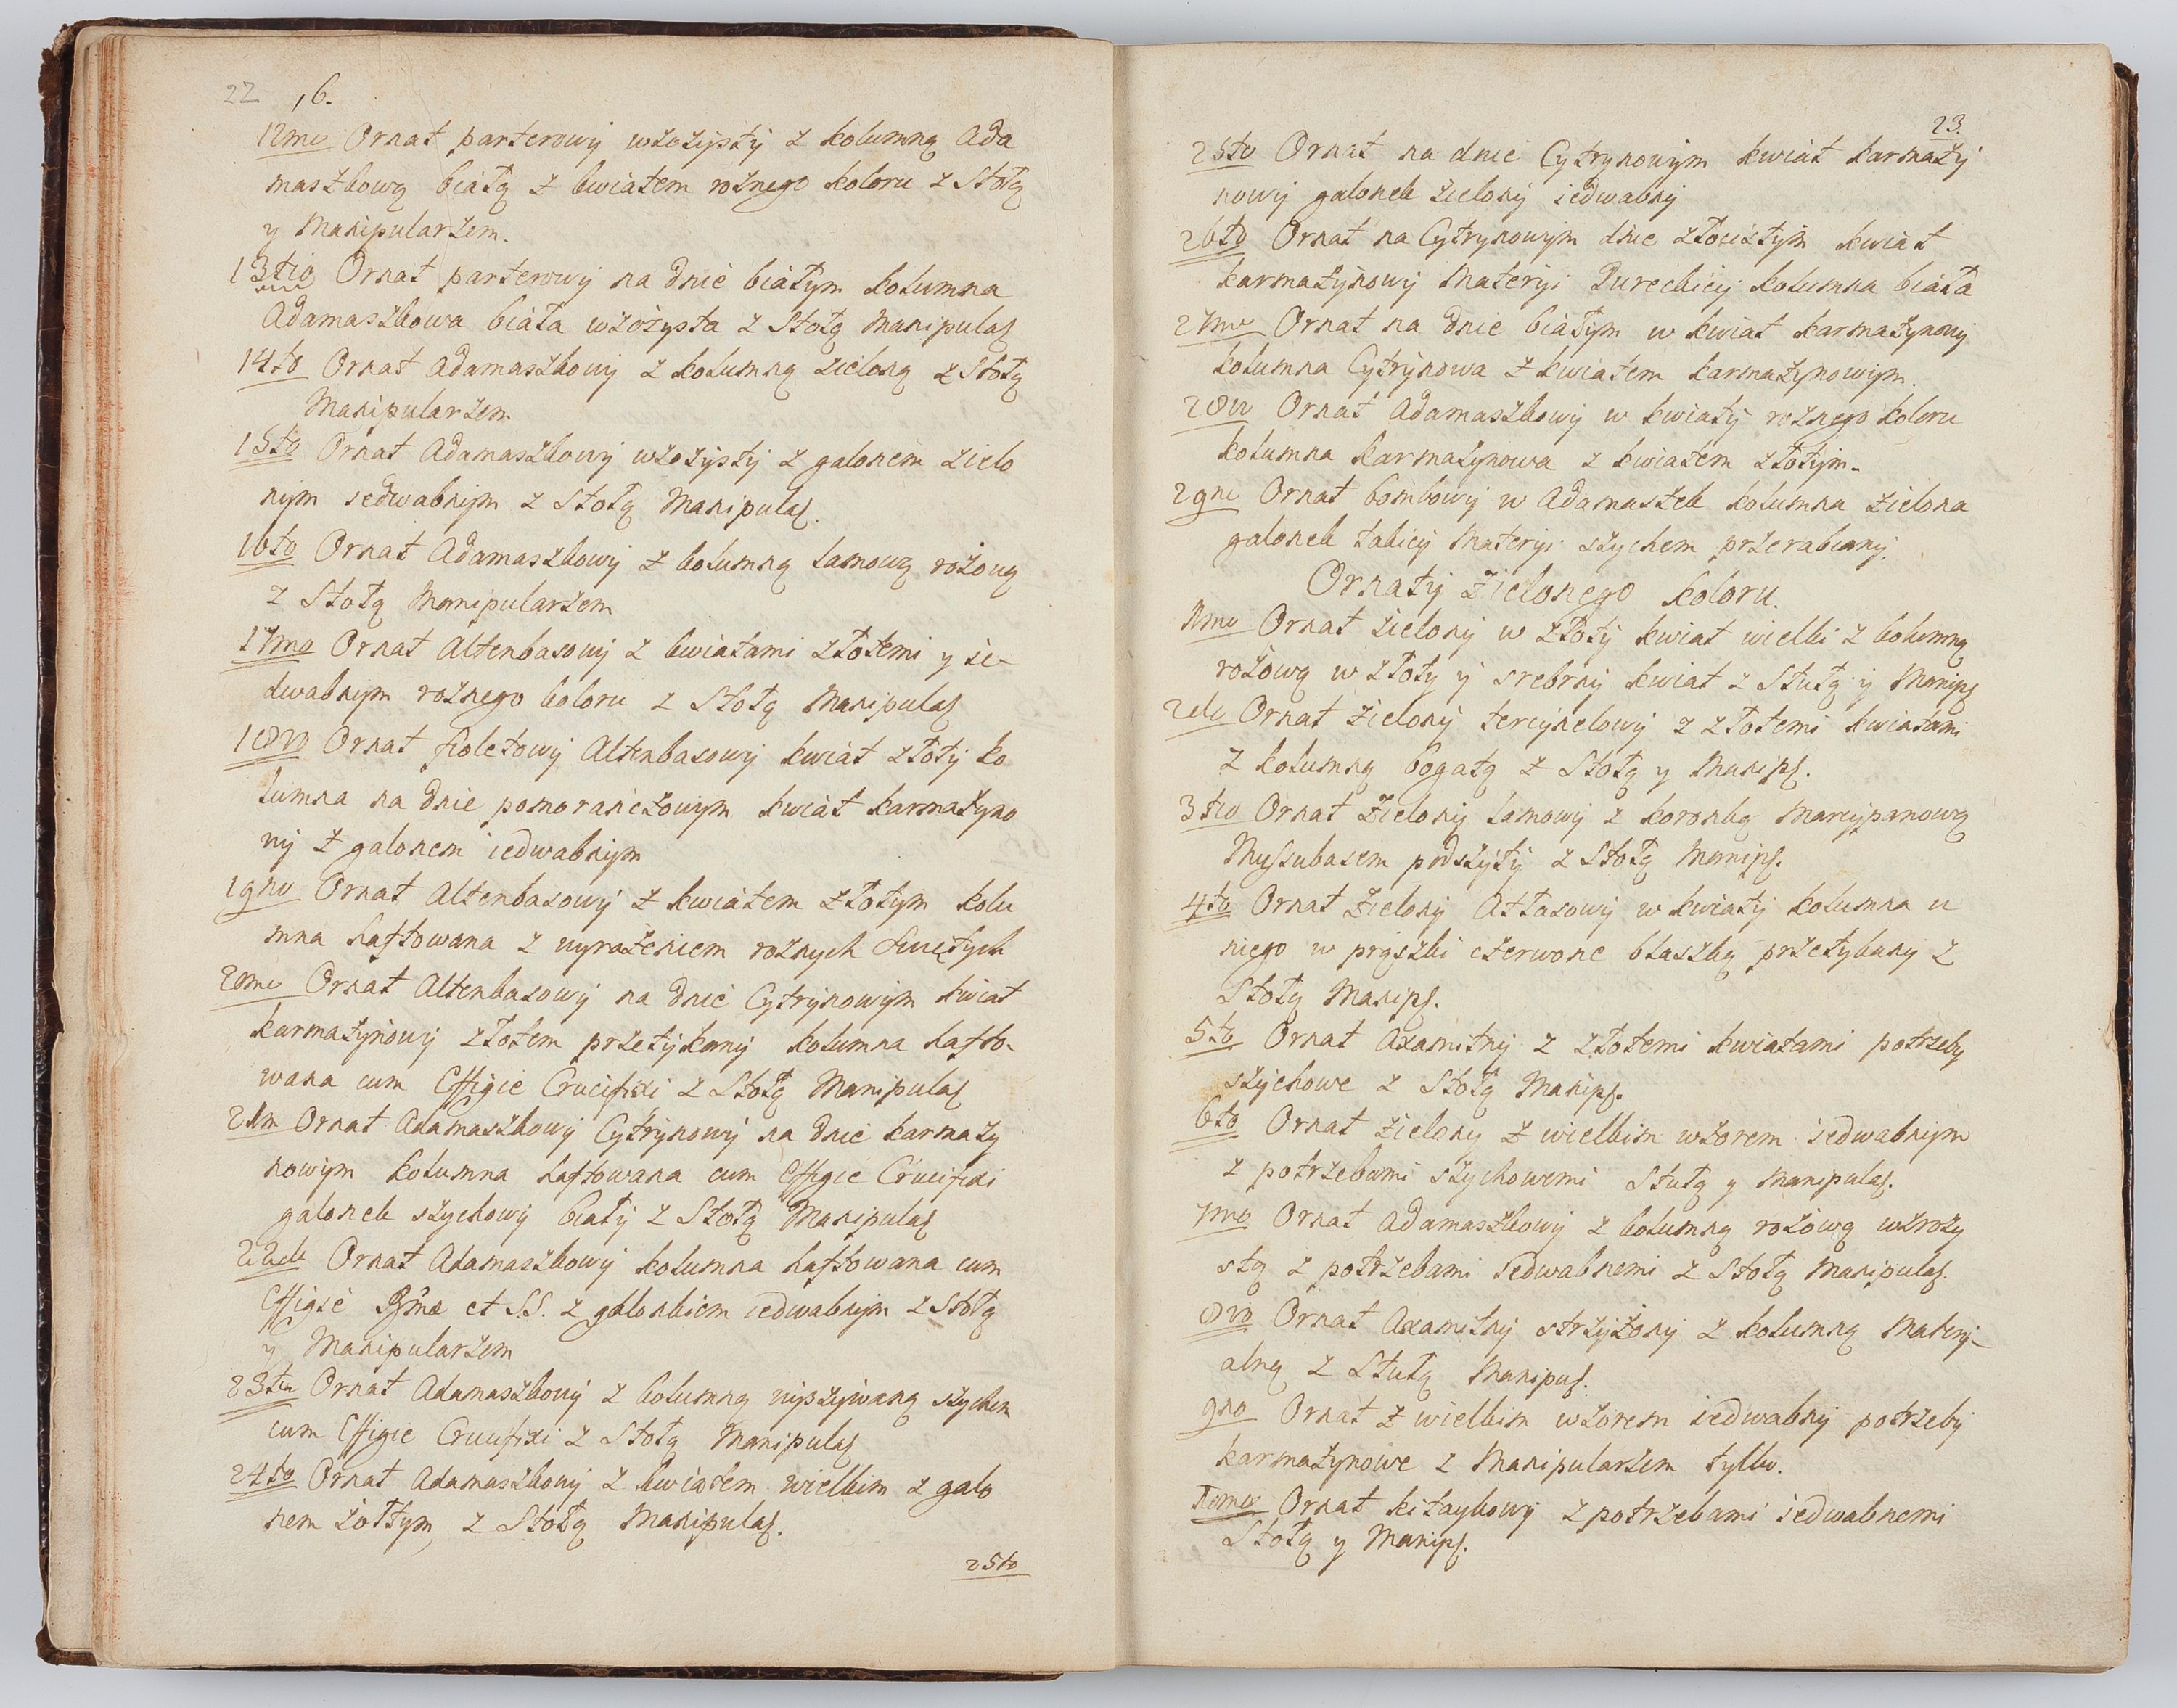 22 16.
12mo Ornat parterowy wzożysty z kolumną Ada
maszkową białą z kwiatem rożnego koloru z Stołą
y Manipularzem.
13tio Ornat parterowy na dnie białym kolumna
Adamaszkowa biała wzożysta z Stołą Manipulaſ
14to Ornat Adamaszkowy z kolumną zieloną z Stołą
Manipularzem
15to Ornat Adamaszkowy wzożysty z galonem zielo
nym iedwabnym z Stołą Manipulaſ.
16to Ornat Adamaszkowy z kolumną lamową rożową
z Stołą Manipularzem
17mo Ornat Altenbasowy z kwiatami złotemi y ie-
dwabnym rożnego koloru z Stołą Manipulaſ
18vo Ornat fioletowy Altenbasowy kwiat złoty ko
lumna na dnie pomorańczowym kwiat karmazyno
wy z galonem iedwabnym
19no Ornat Altenbasowy z kwiatem złotym kolu
mna haftowana z wyrażeniem rożnych Swiętych
20mo Ornat Altenbasowy na dnie Cytrynowym kwiat
karmazynowy złotem przetykany kolumna hafto-
wana cum Effigie Crucifixi z Stołą Manipulaſ
21m Ornat Adamaszkowy Cytrynowy na dnie karmazy
nowym kolumna haftowana cum Effigie Crucifixi
galonek szychowy biały z Stołą Manipulaſ
22do Ornat Adamaszkowy kolumna haftowana cum
Effigie et S.S. z galonkiem iedwabnym z Stołą
y Manipularzem
23tio Ornat Adamaszkowy z kolumną wyszywaną szychem
cum Effigie Crucifixi z Stołą Manipulaſ
24to Ornat Adamaszkowy z kwiatem wielkim z galo
nem żołtym, z Stołą Manipulaſ.
25to
23.
25to Ornat na dnie Cytrynowym kwiat karmazy
nowy galonek zielony iedwabny
26to Ornat na Cytrynowym dnie złocistym kwiat
karmazynowy Materyi Tureckiey kolumna biała
27mo Ornat na dnie białym w kwiat karmazynowy
kolumna Cytrynowa z kwiatem karmazynowym.
28vo Ornat Adamaszkowy w kwiaty rożnego koloru
kolumna karmazynowa z kwiatem złotym-
29no Ornat bombowy w Adamaszek kolumna zielona
galonek takiey Materyi szychem przerabiany.
Ornaty Zielonego koloru.
1mo Ornat zielony w złoty kwiat wielki z kolumną
rożową w złoty y srebrny kwiat z Stułą y Manipſ
2do Ornat zielony tercynelowy z złotemi kwiatami
z kolumną bogatą z Stołą y Manipſ.
3tio Ornat Zielony lamowy z koronką Marcypanową
Muſsubasem podszyty z Stołą Manipſ.
4to Ornat Zielony Atłasowy w kwiaty kolumna u
niego w prążki czerwone blaszką przetykany z
Stołą Manipſ.
5to Ornat Axamitny z złotemi kwiatami potrzeby
szychowe z Stołą Manipſ.
6to Ornat zielony z wielkim wzorem iedwabnym
z potrzebami szychowemi Stułą y Manipulaſ.
7mo Ornat Adamaszkowy z kolumną rożową wzroży
stą z potrzebami iedwabnemi z Stołą Manipulaſ.
8vo Ornat Axamitny strzyżony z kolumną Matery-
alną z Stułą Manipuſ.
9no Ornat z wielkim wzorem iedwabny potrzeby
karmazynowe z Manipularzem tylko.
10mo Ornat kitaykowy z potrzebami iedwabnemi
Stołą y Manipſ.